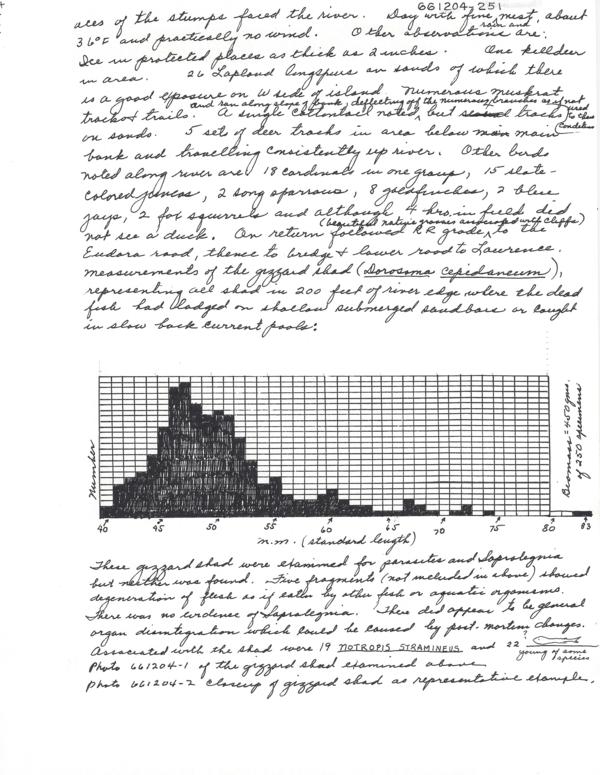 661204-251
aces of the stumps faced the river. Day with fine mist, about
rain and
36°F and practically no wind. Other observations are:
Ice in protected places as thick as 2 inches. One killdeer
in area. 26 Lapland longspurs on sands of which there
is a good exposure on W side of island. Numerous muskrat
and ran along slope of bank, deflecting off the numerous branches as if not
tracks & trails. A single cottontail noted, but tracks
on sands. 5 sets of deer tracks in area below main
bank and travelling consistently up river. Other birds
noted along river are 18 cardinals in one group, 15 slate-
colored juncos, 2 song sparrows, 8 goldfinches, 2 blue
jays, 2 fox squirrels and although 4 hrs. in field did
(beautiful native grasses along road with cliffs)
not see a duck. On return followed RR grade, to the
Eudora road, thence to bridge & lower road to Lawrence.
measurements of the gizzard shad (Dorosoma cepidaneum),
representing all shad in 200 feet of river edge where the dead
fish had lodged on shallow submerged sand bars or caught
in slow back current pools:
Number
Biomass = 450 gms.
of 250 specimens
40 45 50 55 60 65 70 75 80 83
m.m. (standard length)
These gizzard shad were examined for parasites and Saprolegnia
but neither was found. Five fragments (not included in above) showed
degeneration of flesh as if eaten by other fish or aquatic organisms.
There was no evidence of Saprolegnia. There did appear to be general
organ disintegration which could be caused by post-mortem changes.
Associated with the shad were 19 NOTROPIS STRAMINEUS and 22 ?
young of some
species
Photo 661204-1 of the gizzard shad examined above
Photo 661204-2 Closeup of gizzard shad as representative example.